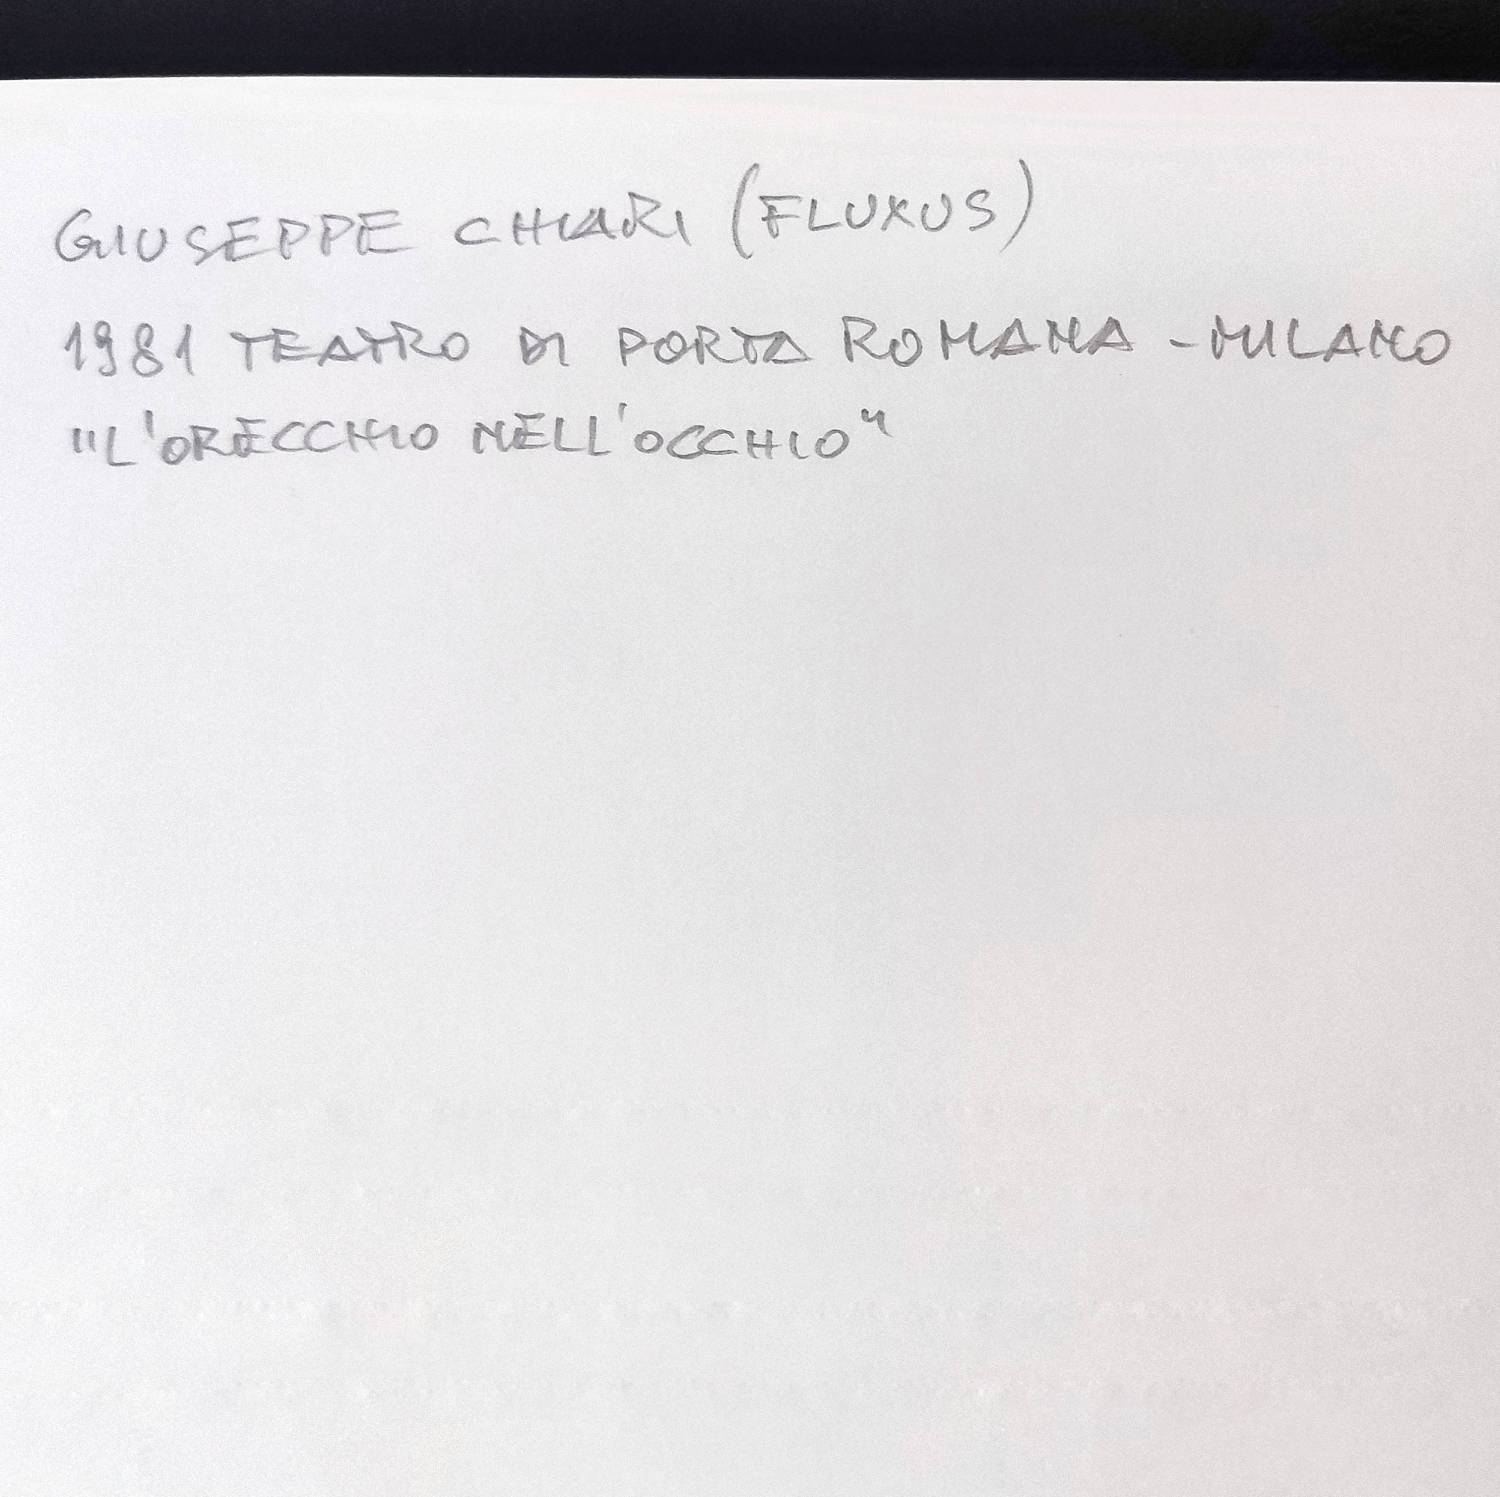 GIUSEPPE CHIARI (FLUXUS)
1981 TEATRO DI PORTA ROMANA - MILANO
"L'ORECCHIO NELL'OCCHIO"